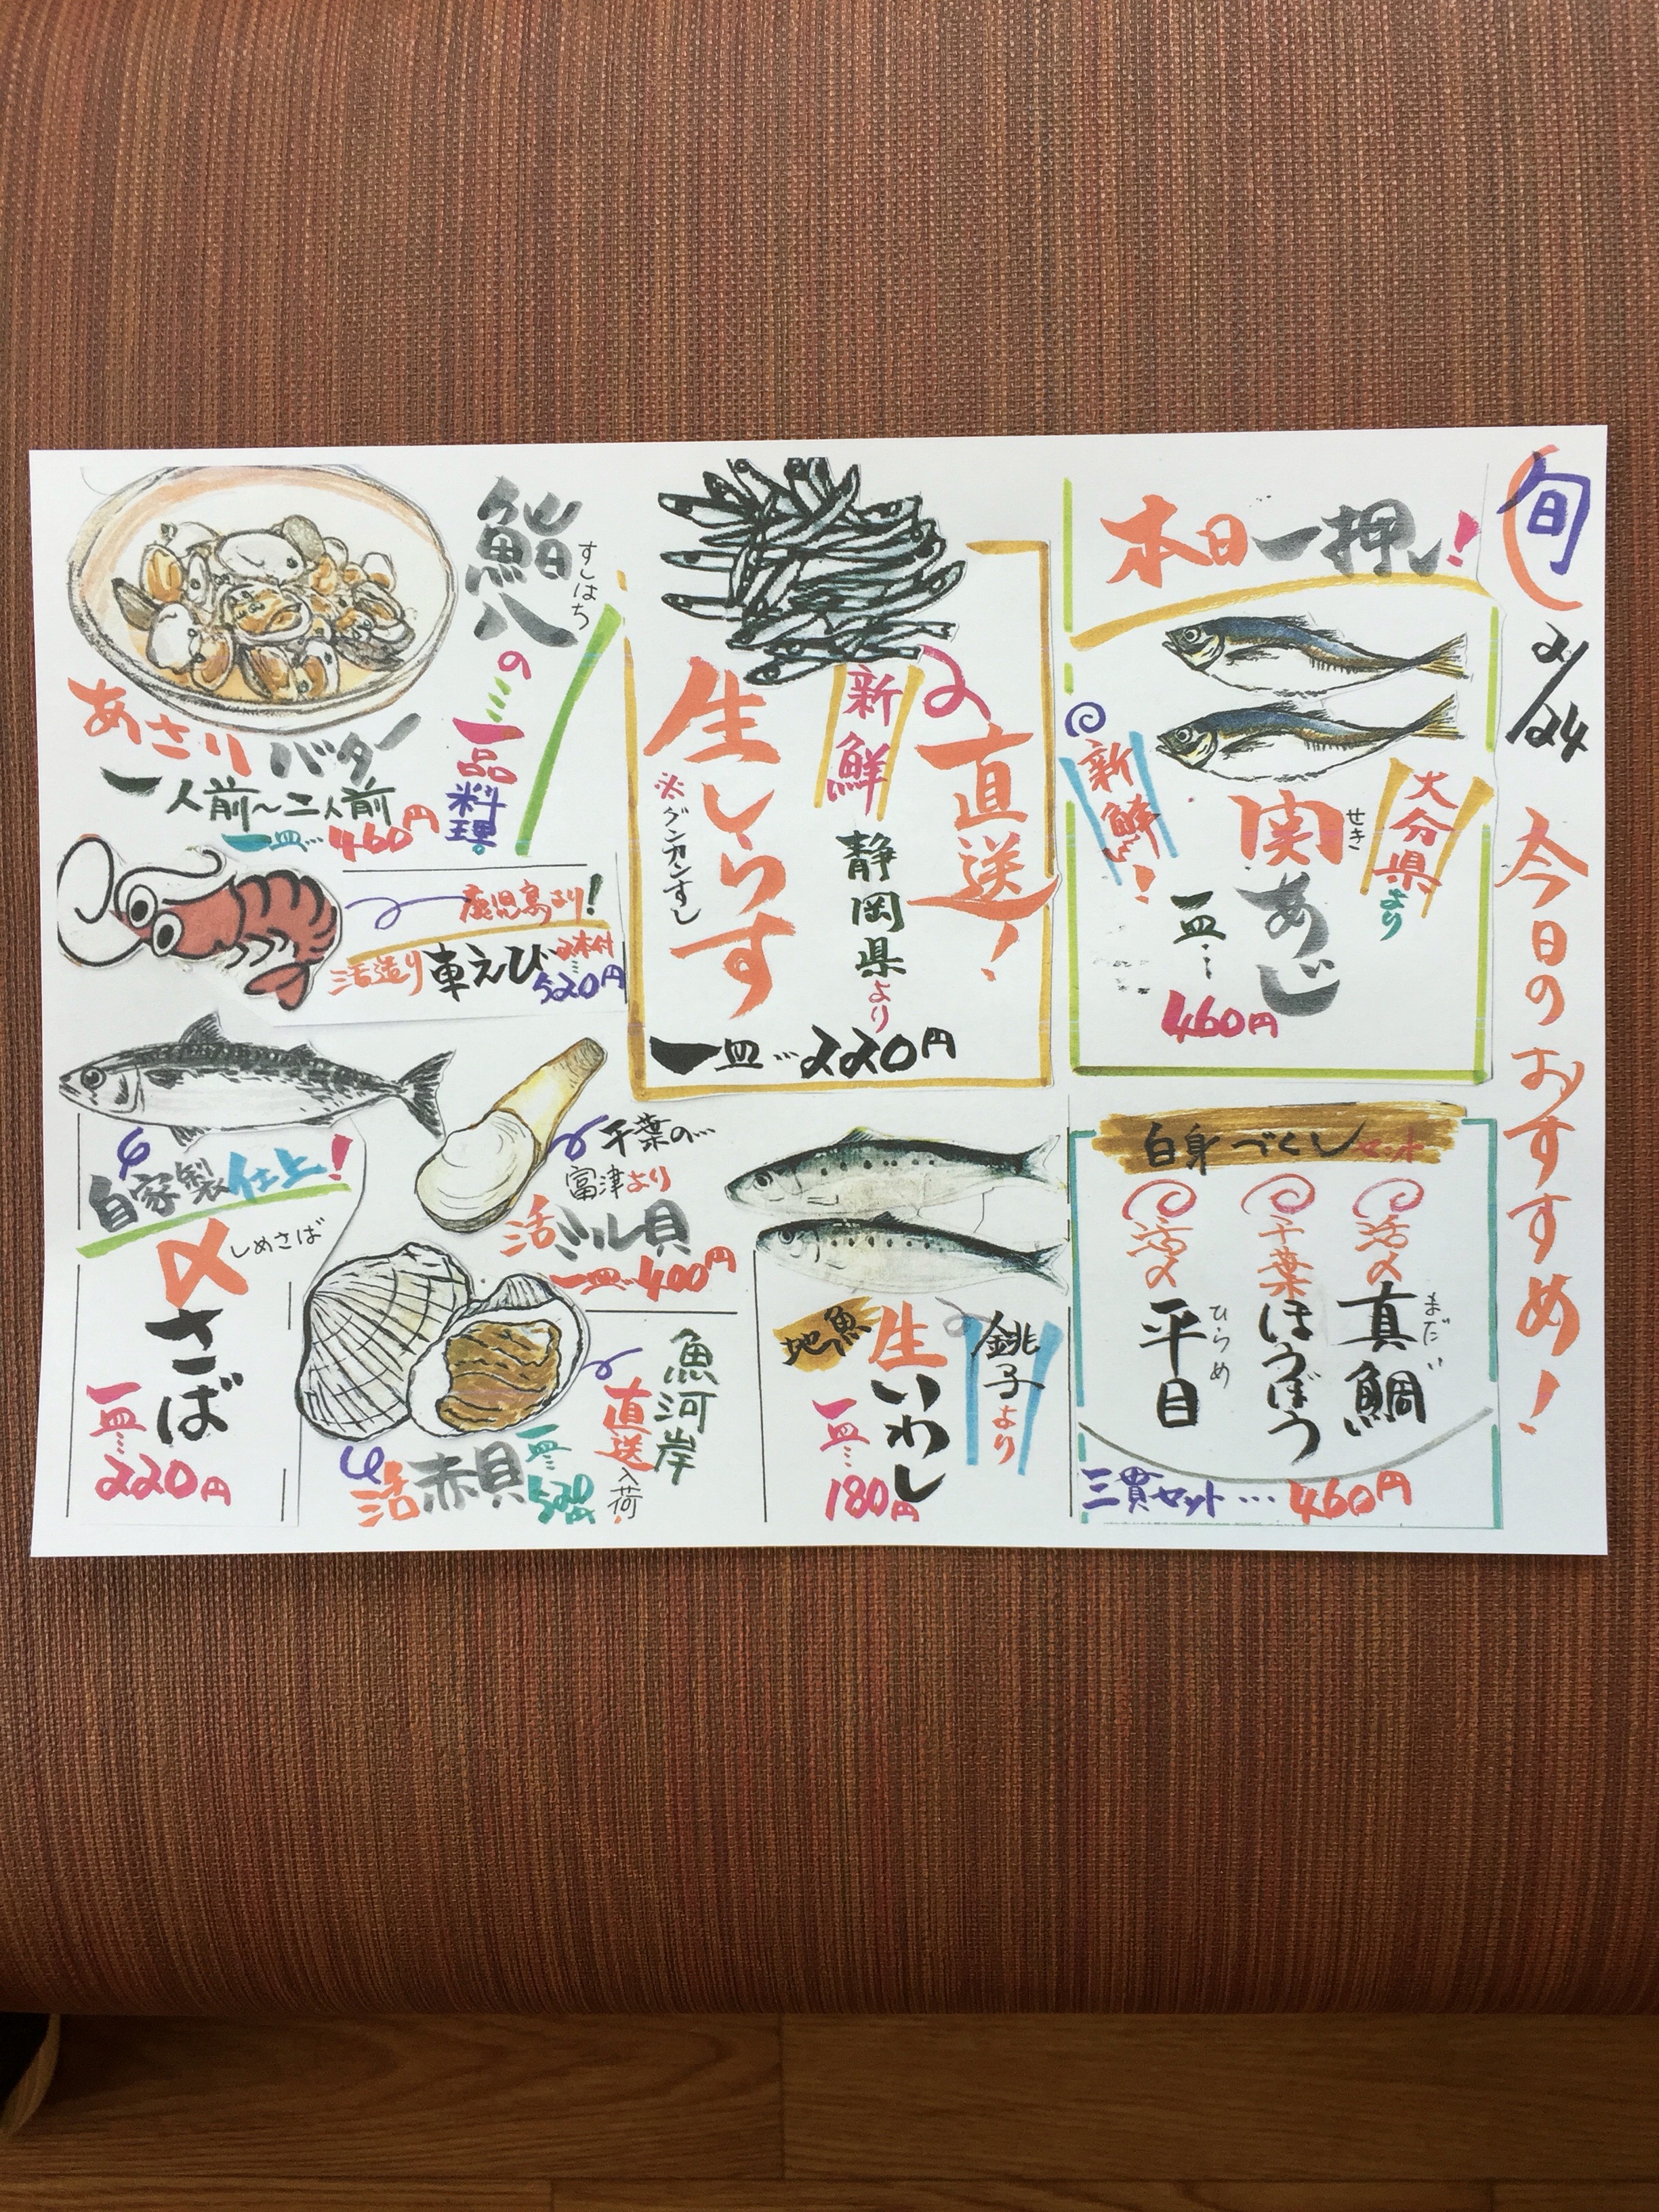 旬
2/24
今日のおすすめ!
本日一押し!
大分県より
関あじ
せき
新鮮!
一皿…
460円
直送!
新鮮
静岡県より
生しらす
※グンカンすし
一皿…220円
鮨八
すしはち
の
一品料理。
あさりバター
一人前~二人前
一皿…460円
鹿児島より!
活造り車えび2本付
520円
自家製仕上!
〆さば
しめさば
一皿…
220円
千葉の…
富津より
活ミル貝
一皿…400円
魚河岸
直送
入荷!
活赤貝
一皿
520円
銚子より
地魚
生いわし
一皿…
180円
白身づくしセット
活〆
真鯛
まだい
千葉
ほうぼう
活〆
平目
ひらめ
三貫セット…460円